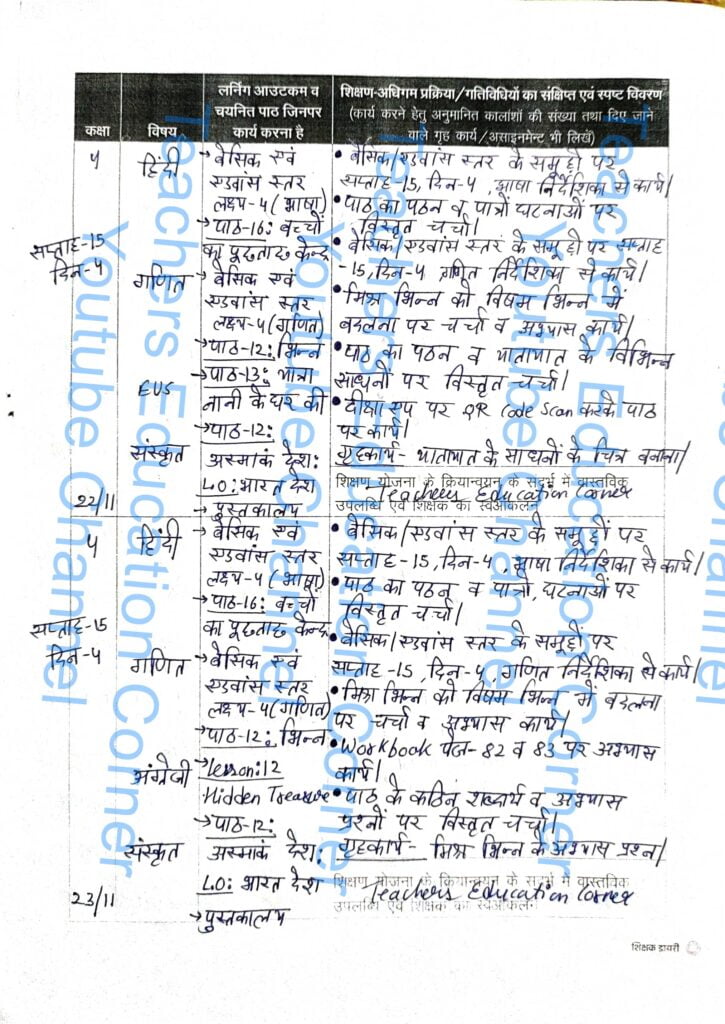 कक्षा
विषय
लर्निंग आउटकम व
चयनित पाठ जिनपर
कार्य करना है
शिक्षण-अधिगम प्रक्रिया/गतिविधियों का संक्षिप्त एवं स्पष्ट विवरण
(कार्य करने हेतु अनुमानित कालांशों की संख्या तथा दिए जाने
वाले गृह कार्य/असाइनमेंट भी लिखें)
4
सप्ताह-15
दिन-4
22/11
हिंदी
गणित
EVS
संस्कृत
→ बेसिक एवं
एडवांस स्तर
लक्ष्य-4 (भाषा)
→ पाठ-16: बच्चों
का पूछताछ केन्द्र
→ बेसिक एवं
एडवांस स्तर
लक्ष्य-4 (गणित)
→ पाठ-12: भिन्न
→ पाठ-13: यात्रा
नानी के घर की
→ पाठ-12:
अस्माकं देश:
LO: भारत देश
→ पुस्तकालय
• बेसिक/एडवांस स्तर के समूहों पर
सप्ताह-15, दिन-4, भाषा निर्देशिका से कार्य।
• पाठ का पठन व पात्रों घटनाओं पर
विस्तृत चर्चा।
• बेसिक/एडवांस स्तर के समूहों पर सप्ताह
-15, दिन-4, गणित निर्देशिका से कार्य।
• मिश्र भिन्न को विषम भिन्न में
बदलना पर चर्चा व अभ्यास कार्य।
• पाठ का पठन व यातायात के विभिन्न
साधनों पर विस्तृत चर्चा।
• दीक्षा एप पर QR Code Scan करके पाठ
पर कार्य।
गृहकार्य- यातायात के साधनों के चित्र बनाना।
शिक्षण योजना के क्रियान्वयन के संदर्भ में वास्तविक
उपलब्धि एवं शिक्षक का स्वआंकलन
Teachers Education Corner
4
सप्ताह-15
दिन-4
23/11
हिंदी
गणित
अंग्रेजी
संस्कृत
→ बेसिक एवं
एडवांस स्तर
लक्ष्य-4 (भाषा)
→ पाठ-16: बच्चों
का पूछताछ केन्द्र
→ बेसिक एवं
एडवांस स्तर
लक्ष्य-4 (गणित)
→ पाठ-12: भिन्न
→ Lesson:12
Hidden Treasure
→ पाठ-12:
अस्माकं देश:
LO: भारत देश
→ पुस्तकालय
• बेसिक/एडवांस स्तर के समूहों पर
सप्ताह-15, दिन-4, भाषा निर्देशिका से कार्य।
• पाठ का पठन व पात्रों, घटनाओं पर
विस्तृत चर्चा।
• बेसिक/एडवांस स्तर के समूहों पर
सप्ताह-15, दिन-4, गणित निर्देशिका से कार्य।
• मिश्र भिन्न को विषम भिन्न में बदलना
पर चर्चा व अभ्यास कार्य।
• Workbook पेज-82 व 83 पर अभ्यास
कार्य।
• पाठ के कठिन शब्दार्थ व अभ्यास
प्रश्नों पर विस्तृत चर्चा।
गृहकार्य- मिश्र भिन्न के अभ्यास प्रश्न।
शिक्षण योजना के क्रियान्वयन के संदर्भ में वास्तविक
उपलब्धि एवं शिक्षक का स्वआंकलन
Teachers Education Corner
शिक्षक डायरी
Teachers Education Corner
Youtube Channel
Teachers Education Corner
Youtube Channel
Teachers Education Corner
Youtube Channel